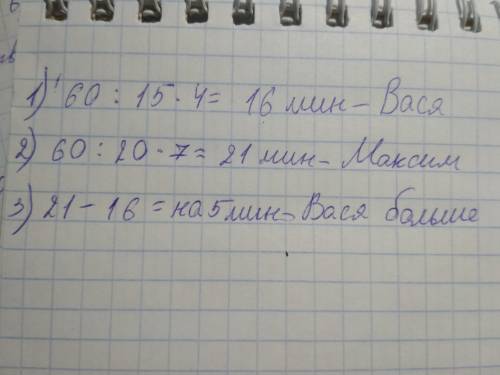 1) 60 : 15 · 4 = 16 мин - Вася
2) 60 : 20 · 7 = 21 мин - Максим
3) 21 - 16 = на 5 мин - Вася больше